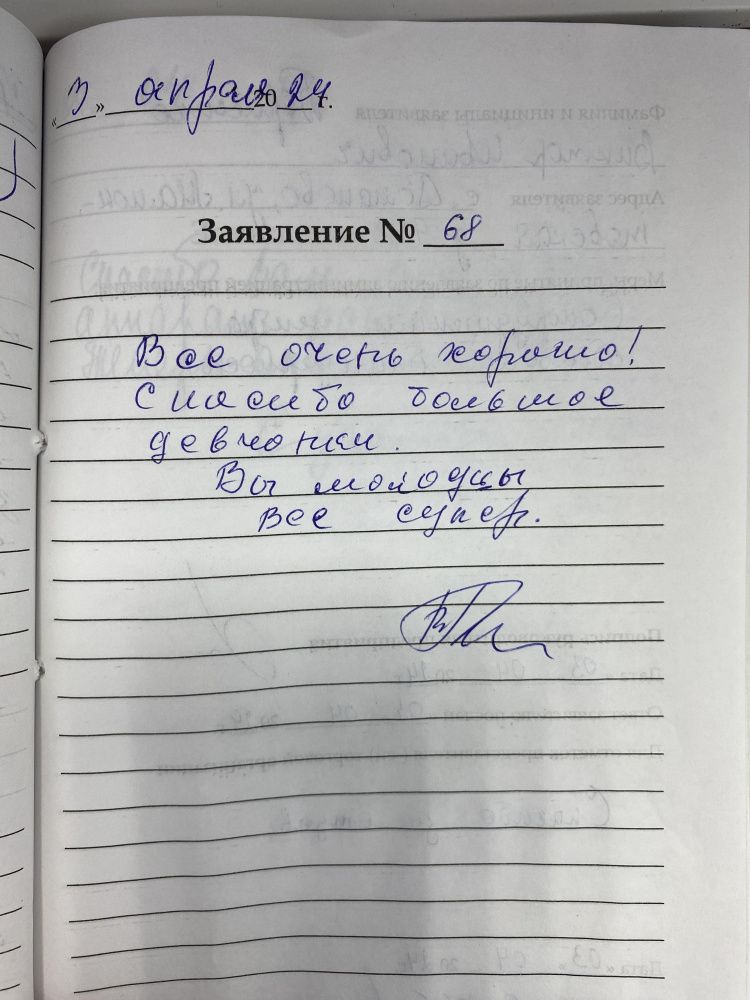 « 3 » апреля 2024 г.
Заявление № 68
Все очень хорошо!
Спасибо большое
девчонки.
Вы молодцы
все супер.